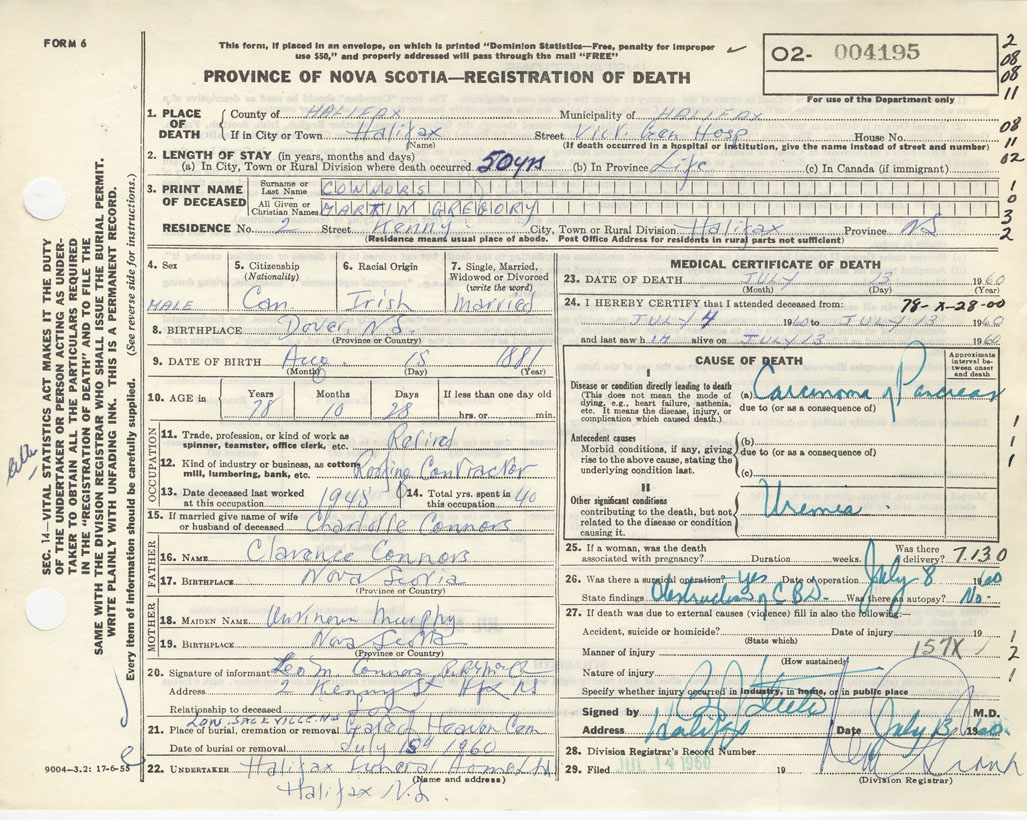 FORM 6
This form, if placed in an envelope, on which is printed "Dominion Statistics—Free, penalty for improper
use $50," and properly addressed will pass through the mail "FREE"
PROVINCE OF NOVA SCOTIA—REGISTRATION OF DEATH
O2- 004195
For use of the Department only
2
08
08
11
08
11
02
1
0
3
2
1. PLACE OF DEATH
County of HALIFAX Municipality of HALIFAX
If in City or Town Halifax Street Vict Gen Hosp House No.
(Name) (If death occurred in a hospital or institution, give the name instead of street and number)
2. LENGTH OF STAY (in years, months and days)
(a) In City, Town or Rural Division where death occurred 50 yrs (b) In Province Life (c) In Canada (if immigrant)
3. PRINT NAME OF DECEASED
Surname or Last Name CONNORS
All Given or Christian Names MARTIN GREGORY
RESIDENCE No. 2 Street Kenny City, Town or Rural Division Halifax Province NS
(Residence means usual place of abode. Post Office Address for residents in rural parts not sufficient)
4. Sex MALE
5. Citizenship (Nationality) Can.
6. Racial Origin Irish
7. Single, Married, Widowed or Divorced (write the word) Married
8. BIRTHPLACE Dover, N.S.
(Province or Country)
9. DATE OF BIRTH Aug 15 1881
(Month) (Day) (Year)
10. AGE in Years 78 Months 10 Days 28 If less than one day old
hrs. or min.
OCCUPATION
11. Trade, profession, or kind of work as
spinner, teamster, office clerk, etc. Retired
12. Kind of industry or business, as cotton
mill, lumbering, bank, etc. Roofing Contractor
13. Date deceased last worked
at this occupation 1948
14. Total yrs. spent in
this occupation 40
15. If married give name of wife
or husband of deceased Charlotte Connors
FATHER
16. NAME Clarence Connors
17. BIRTHPLACE Nova Scotia
(Province or Country)
MOTHER
18. MAIDEN NAME Unknown Murphy
19. BIRTHPLACE Nova Scotia
(Province or Country)
20. Signature of informant Leo M Connors
Address 2 Kenny St Hfx NS
Relationship to deceased Son
LOW. SACKVILLE NS
21. Place of burial, cremation or removal Gate of Heaven Cem
Date of burial or removal July 15th 1960
22. UNDERTAKER Halifax Funeral Home Ltd
(Name and address)
Halifax N.S.
MEDICAL CERTIFICATE OF DEATH
23. DATE OF DEATH JULY 13 1960
(Month) (Day) (Year)
24. I HEREBY CERTIFY that I attended deceased from: 78-X-28-00
JULY 4 1960 to JULY 13 1960
and last saw h IM alive on JULY 13 1960
CAUSE OF DEATH
Approximate interval between onset and death
I
Disease or condition directly leading to death
(This does not mean the mode of
dying, e.g., heart failure, asthenia,
etc. It means the disease, injury, or
complication which caused death.)
(a) Carcinoma of Pancreas
due to (or as a consequence of)
Antecedent causes
Morbid conditions, if any, giving
rise to the above cause, stating the
underlying condition last.
(b)
due to (or as a consequence of)
(c)
II
Other significant conditions
contributing to the death, but not
related to the disease or condition
causing it.
Uremia
1
1
1
25. If a woman, was the death
associated with pregnancy? Duration weeks. Was there a delivery? 7.130
26. Was there a surgical operation? yes Date of operation July 8 1960
State findings Obstruction of C.B.D. Was there an autopsy? No.
27. If death was due to external causes (violence) fill in also the following:—
Accident, suicide or homicide? Date of injury 19
(State which)
Manner of injury 157X
(How sustained)
Nature of injury
Specify whether injury occurred in industry, in home, or in public place
1
2
1
Signed by M.D.
Address Halifax Date July 13 1960
28. Division Registrar's Record Number
29. Filed JUL 14 1960 19
(Division Registrar)
SEC. 14—VITAL STATISTICS ACT MAKES IT THE DUTY
OF THE UNDERTAKER OR PERSON ACTING AS UNDER-
TAKER TO OBTAIN ALL THE PARTICULARS REQUIRED
IN THE "REGISTRATION OF DEATH" AND TO FILE THE
SAME WITH THE DIVISION REGISTRAR WHO SHALL ISSUE THE BURIAL PERMIT.
WRITE PLAINLY WITH UNFADING INK. THIS IS A PERMANENT RECORD.
Every item of information should be carefully supplied. (See reverse side for instructions.)
9004—3.2: 17-6-55